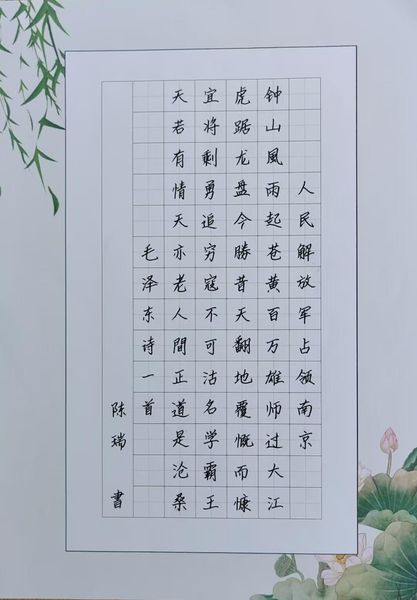 人民解放军占领南京
钟山風雨起苍黄百万雄师过大江
虎踞龙盘今勝昔天翻地覆慨而慷
宜将剩勇追穷寇不可沽名学霸王
天若有情天亦老人間正道是沧桑
毛泽东诗一首
陈瑞 書